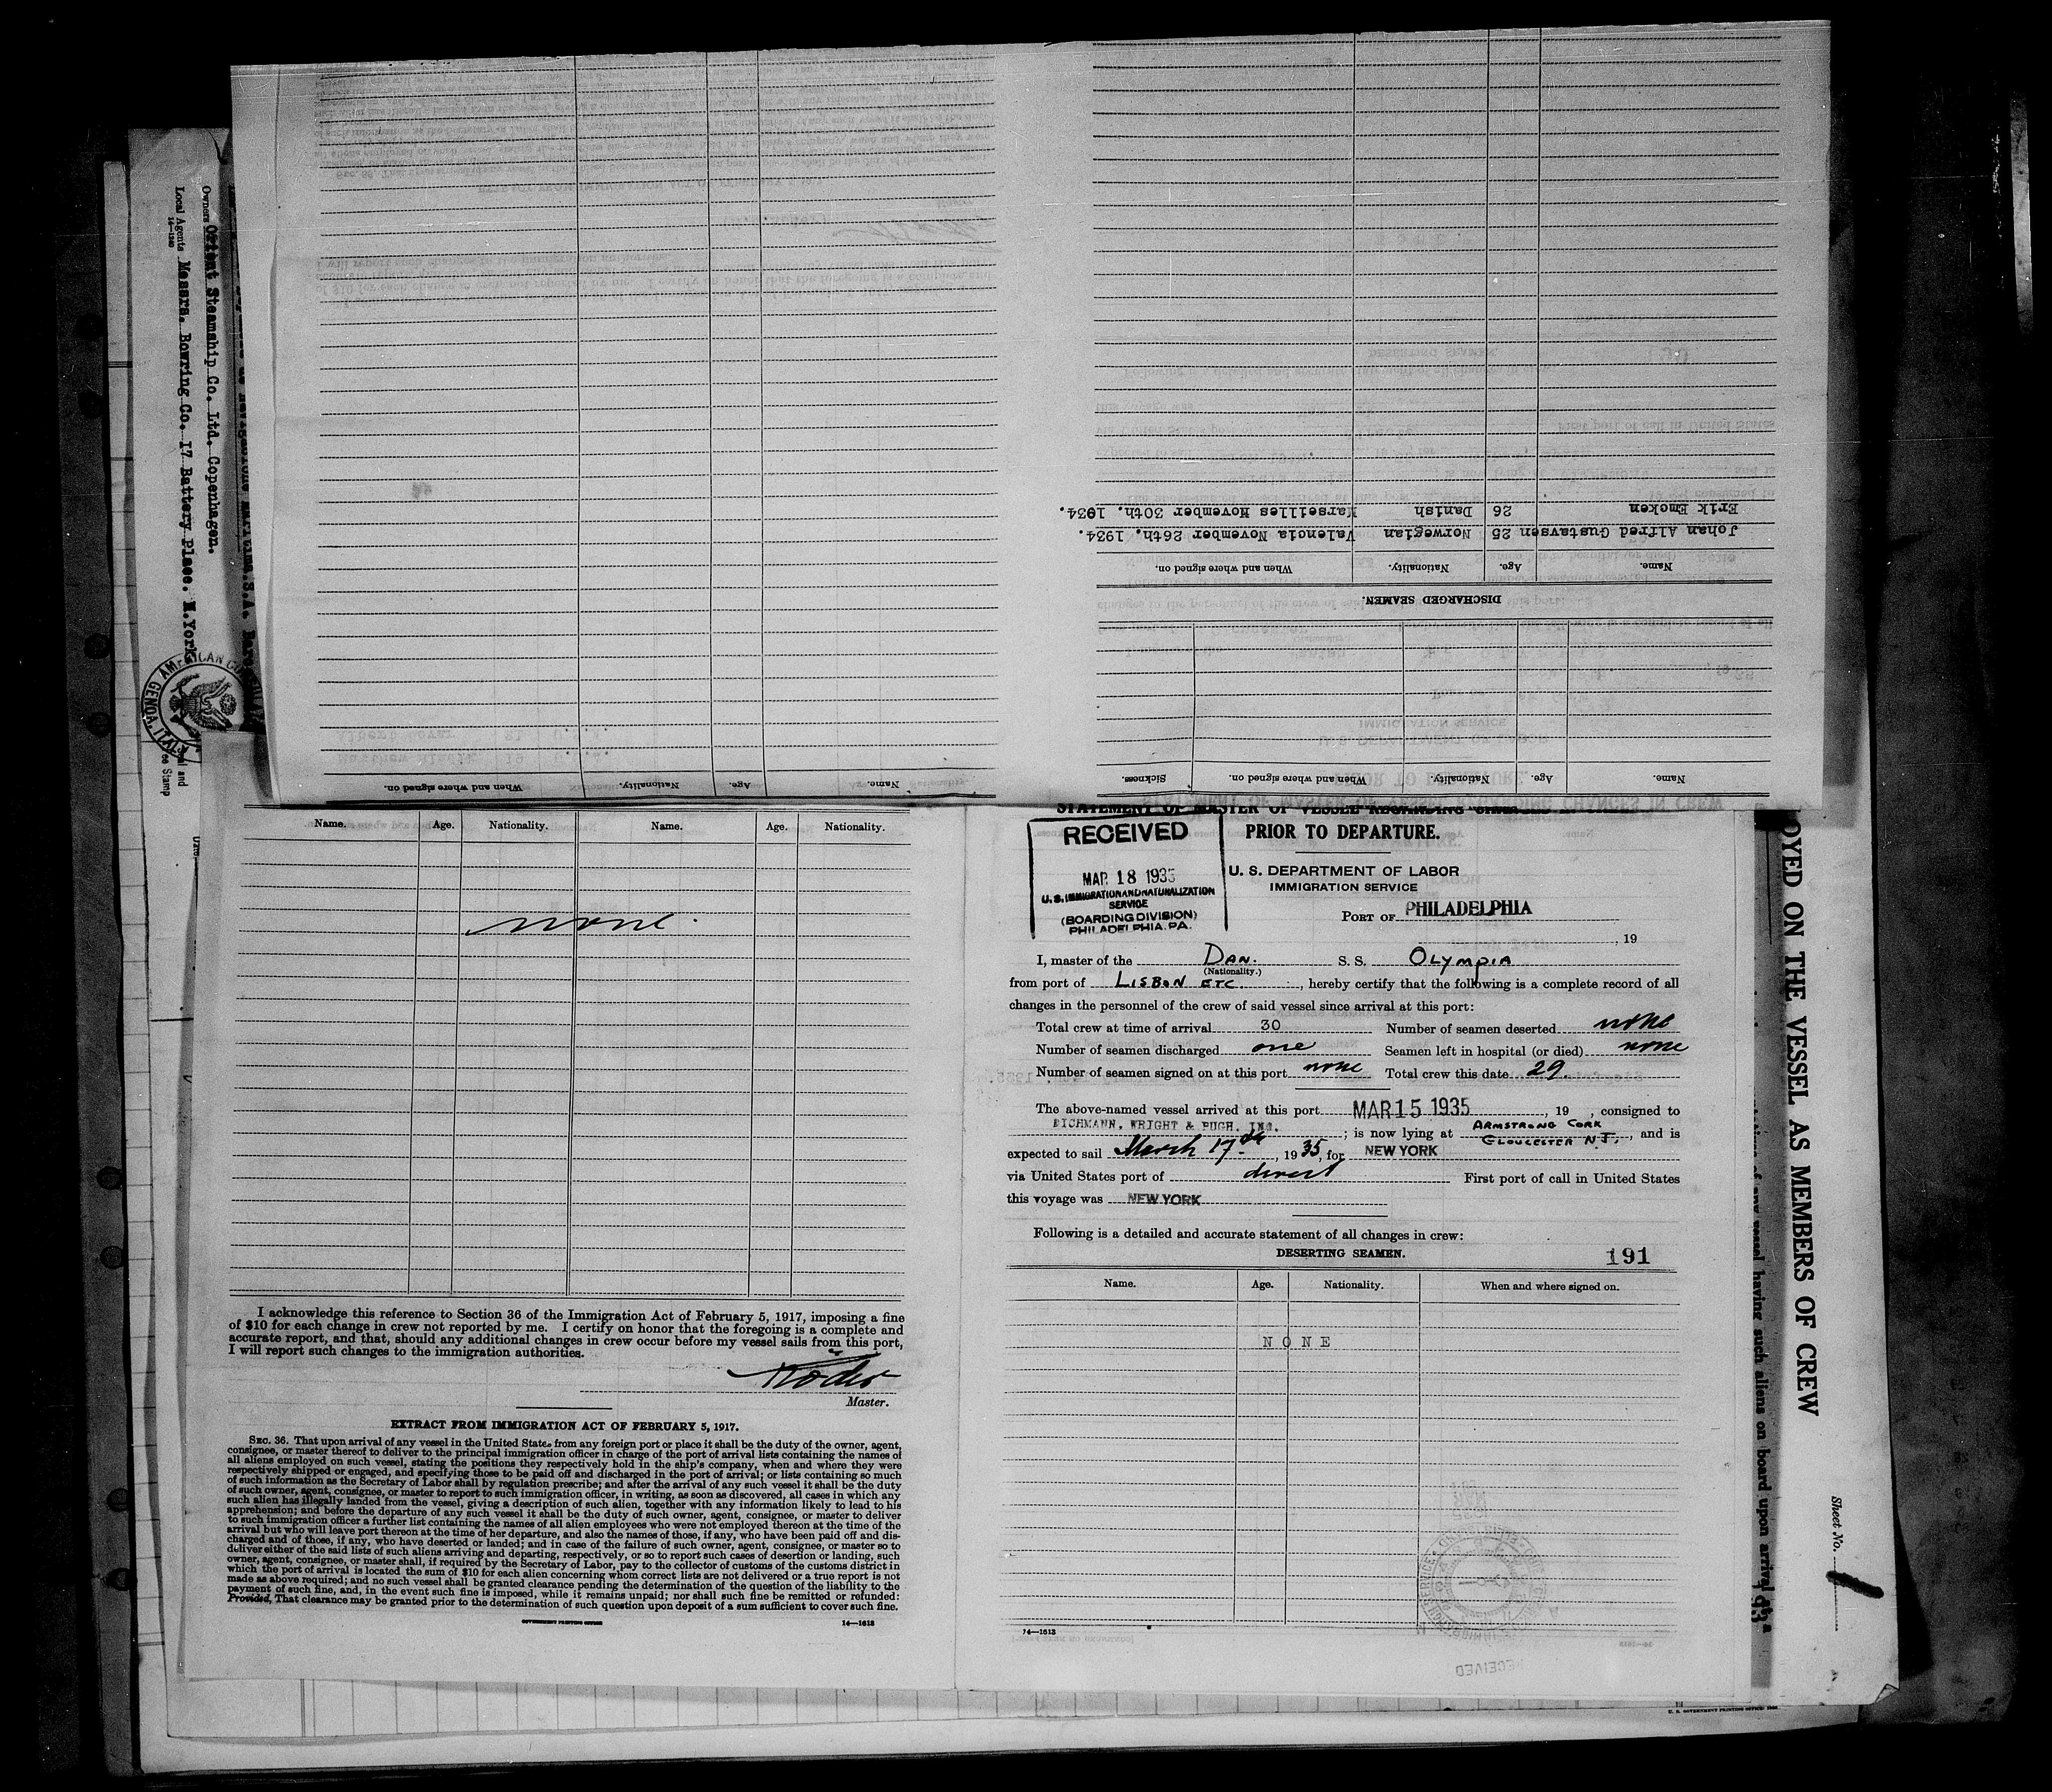 Name. Age. Nationality. When and where signed on.
Name. Age. Nationality. When and where signed on. Sickness.
DISCHARGED SEAMEN.
Name. Age. Nationality. When and where signed on.
Johan Alfred Gustavsen 25 Norwegian Valencia November 26th. 1934.
Erik Emcken 26 Danish Marseilles November 30th. 1934.
Owners Orient Steamship Co. Ltd. Copenhagen.
Local Agents Messrs. Bowring Co. 17 Battery Place. N.York
14—1240
AMERICAN
GENOA, ITALY
Name. Age. Nationality. Name. Age. Nationality.
none.
I acknowledge this reference to Section 36 of the Immigration Act of February 5, 1917, imposing a fine
of $10 for each change in crew not reported by me. I certify on honor that the foregoing is a complete and
accurate report, and that, should any additional changes in crew occur before my vessel sails from this port,
I will report such changes to the immigration authorities.
Master.
EXTRACT FROM IMMIGRATION ACT OF FEBRUARY 5, 1917.
SEC. 36. That upon arrival of any vessel in the United States from any foreign port or place it shall be the duty of the owner, agent,
consignee, or master thereof to deliver to the principal immigration officer in charge of the port of arrival lists containing the names of
all aliens employed on such vessel, stating the positions they respectively hold in the ship's company, when and where they were
respectively shipped or engaged, and specifying those to be paid off and discharged in the port of arrival; or lists containing so much
of such information as the Secretary of Labor shall by regulation prescribe; and after the arrival of any such vessel it shall be the duty
of such owner, agent, consignee, or master to report to such immigration officer, in writing, as soon as discovered, all cases in which any
such alien has illegally landed from the vessel, giving a description of such alien, together with any information likely to lead to his
apprehension; and before the departure of any such vessel it shall be the duty of such owner, agent, consignee, or master to deliver
to such immigration officer a further list containing the names of all alien employees who were not employed thereon at the time of the
arrival but who will leave port thereon at the time of her departure, and also the names of those, if any, who have been paid off and dis-
charged and of those, if any, who have deserted or landed; and in case of the failure of such owner, agent, consignee, or master so to
deliver either of the said lists of such aliens arriving and departing, respectively, or so to report such cases of desertion or landing, such
owner, agent, consignee, or master shall, if required by the Secretary of Labor, pay to the collector of customs of the customs district in
which the port of arrival is located the sum of $10 for each alien concerning whom correct lists are not delivered or a true report is not
made as above required; and no such vessel shall be granted clearance pending the determination of the question of the liability to the
payment of such fine, and, in the event such fine is imposed, while it remains unpaid; nor shall such fine be remitted or refunded:
Provided, That clearance may be granted prior to the determination of such question upon deposit of a sum sufficient to cover such fine.
GOVERNMENT PRINTING OFFICE 14—1613
STATEMENT OF MASTER OF VESSEL REGARDING CHANGES IN CREW
PRIOR TO DEPARTURE.
RECEIVED
MAR 18 1935
U. S. IMMIGRATION AND NATURALIZATION
SERVICE
(BOARDING DIVISION)
PHILADELPHIA, PA.
U. S. DEPARTMENT OF LABOR
IMMIGRATION SERVICE
PORT OF PHILADELPHIA
, 19
I, master of the DAN. S. S. OLYMPIA
(Nationality.)
from port of LISBON ETC. , hereby certify that the following is a complete record of all
changes in the personnel of the crew of said vessel since arrival at this port:
Total crew at time of arrival 30 Number of seamen deserted none
Number of seamen discharged one Seamen left in hospital (or died) none
Number of seamen signed on at this port none Total crew this date 29.
The above-named vessel arrived at this port MAR 15 1935 , 19 , consigned to
DICHMANN, WRIGHT & PUGH, INC. ; is now lying at ARMSTRONG CORK GLOUCESTER N.J. , and is
expected to sail March 17th , 1935, for NEW YORK
via United States port of direct First port of call in United States
this voyage was NEW YORK
Following is a detailed and accurate statement of all changes in crew:
DESERTING SEAMEN. 191
Name. Age. Nationality. When and where signed on.
NONE
14—1613
OYED ON THE VESSEL AS MEMBERS OF CREW
of any vessel having such aliens on board upon arrival at a
Sheet No.
U. S. GOVERNMENT PRINTING OFFICE